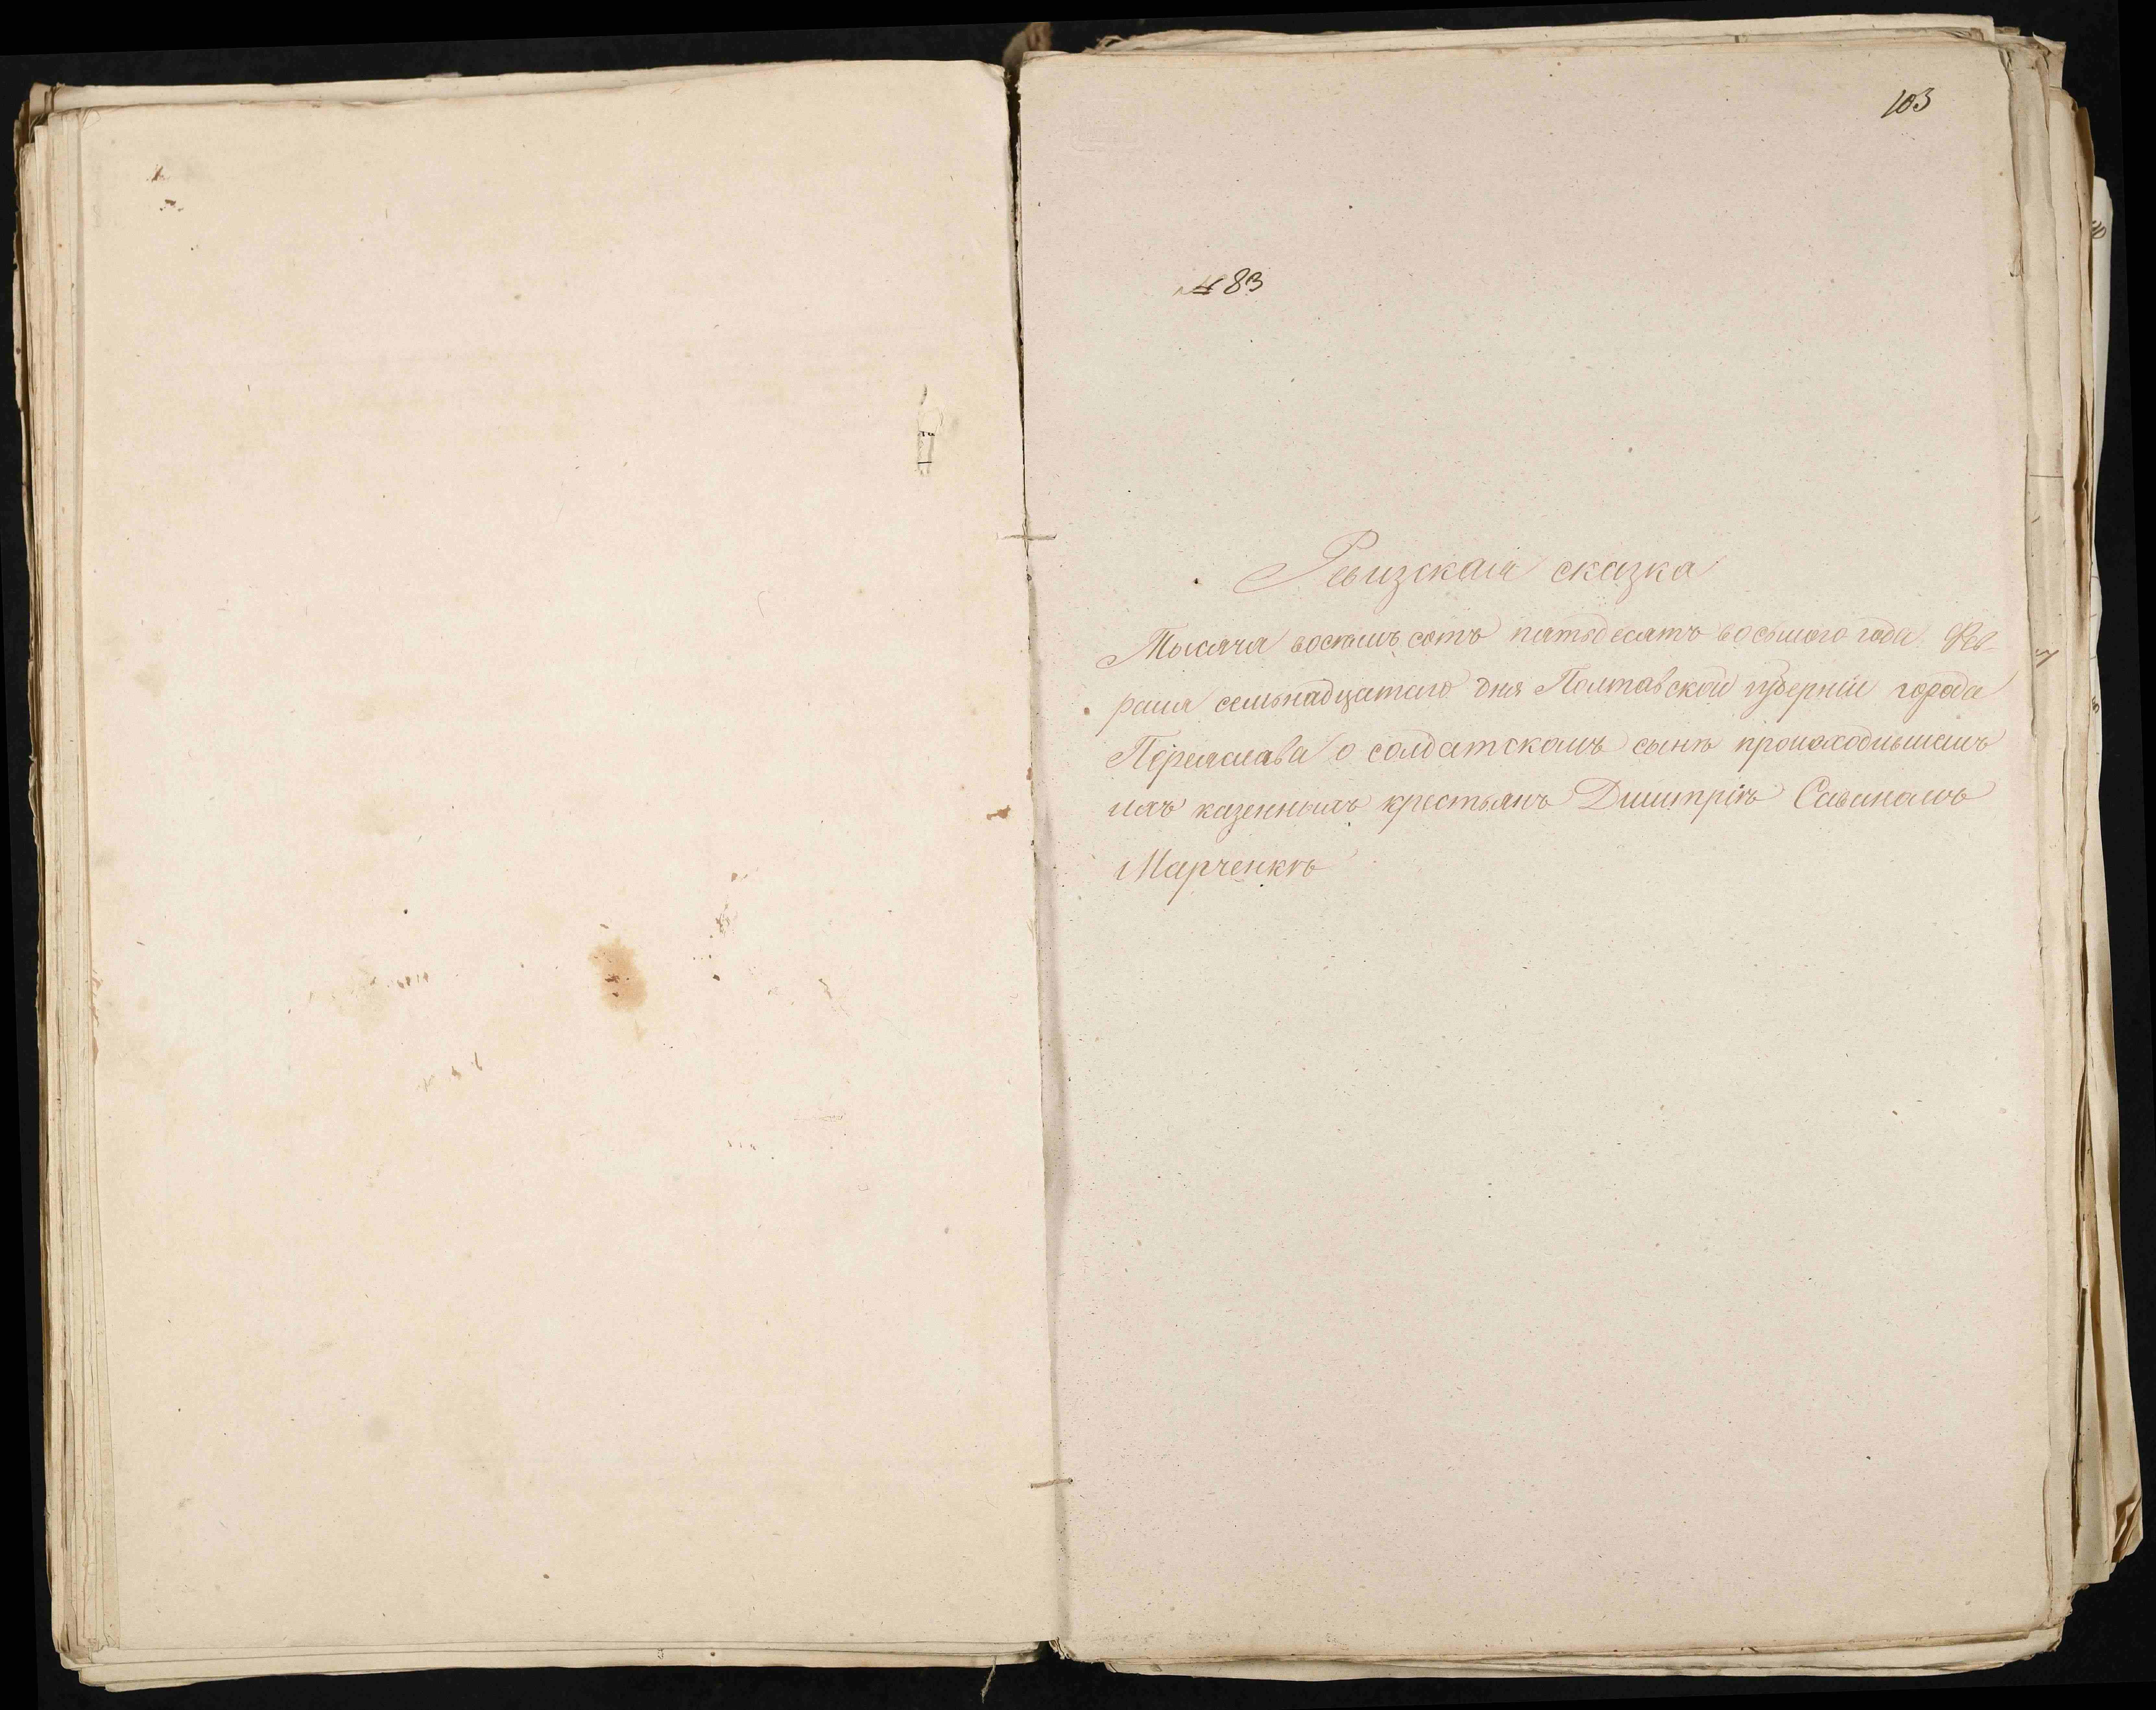 103
№ 83
Ревизская сказка
Тысяча восемь сотъ пятьдесятъ восьмого года Фев-
раля семьнадцатаго дня Полтавской губерніи города
Переяслава о солдатскомъ сынѣ происходившемъ
изъ казенныхъ крестьянъ Димитріѣ
Марченкѣ